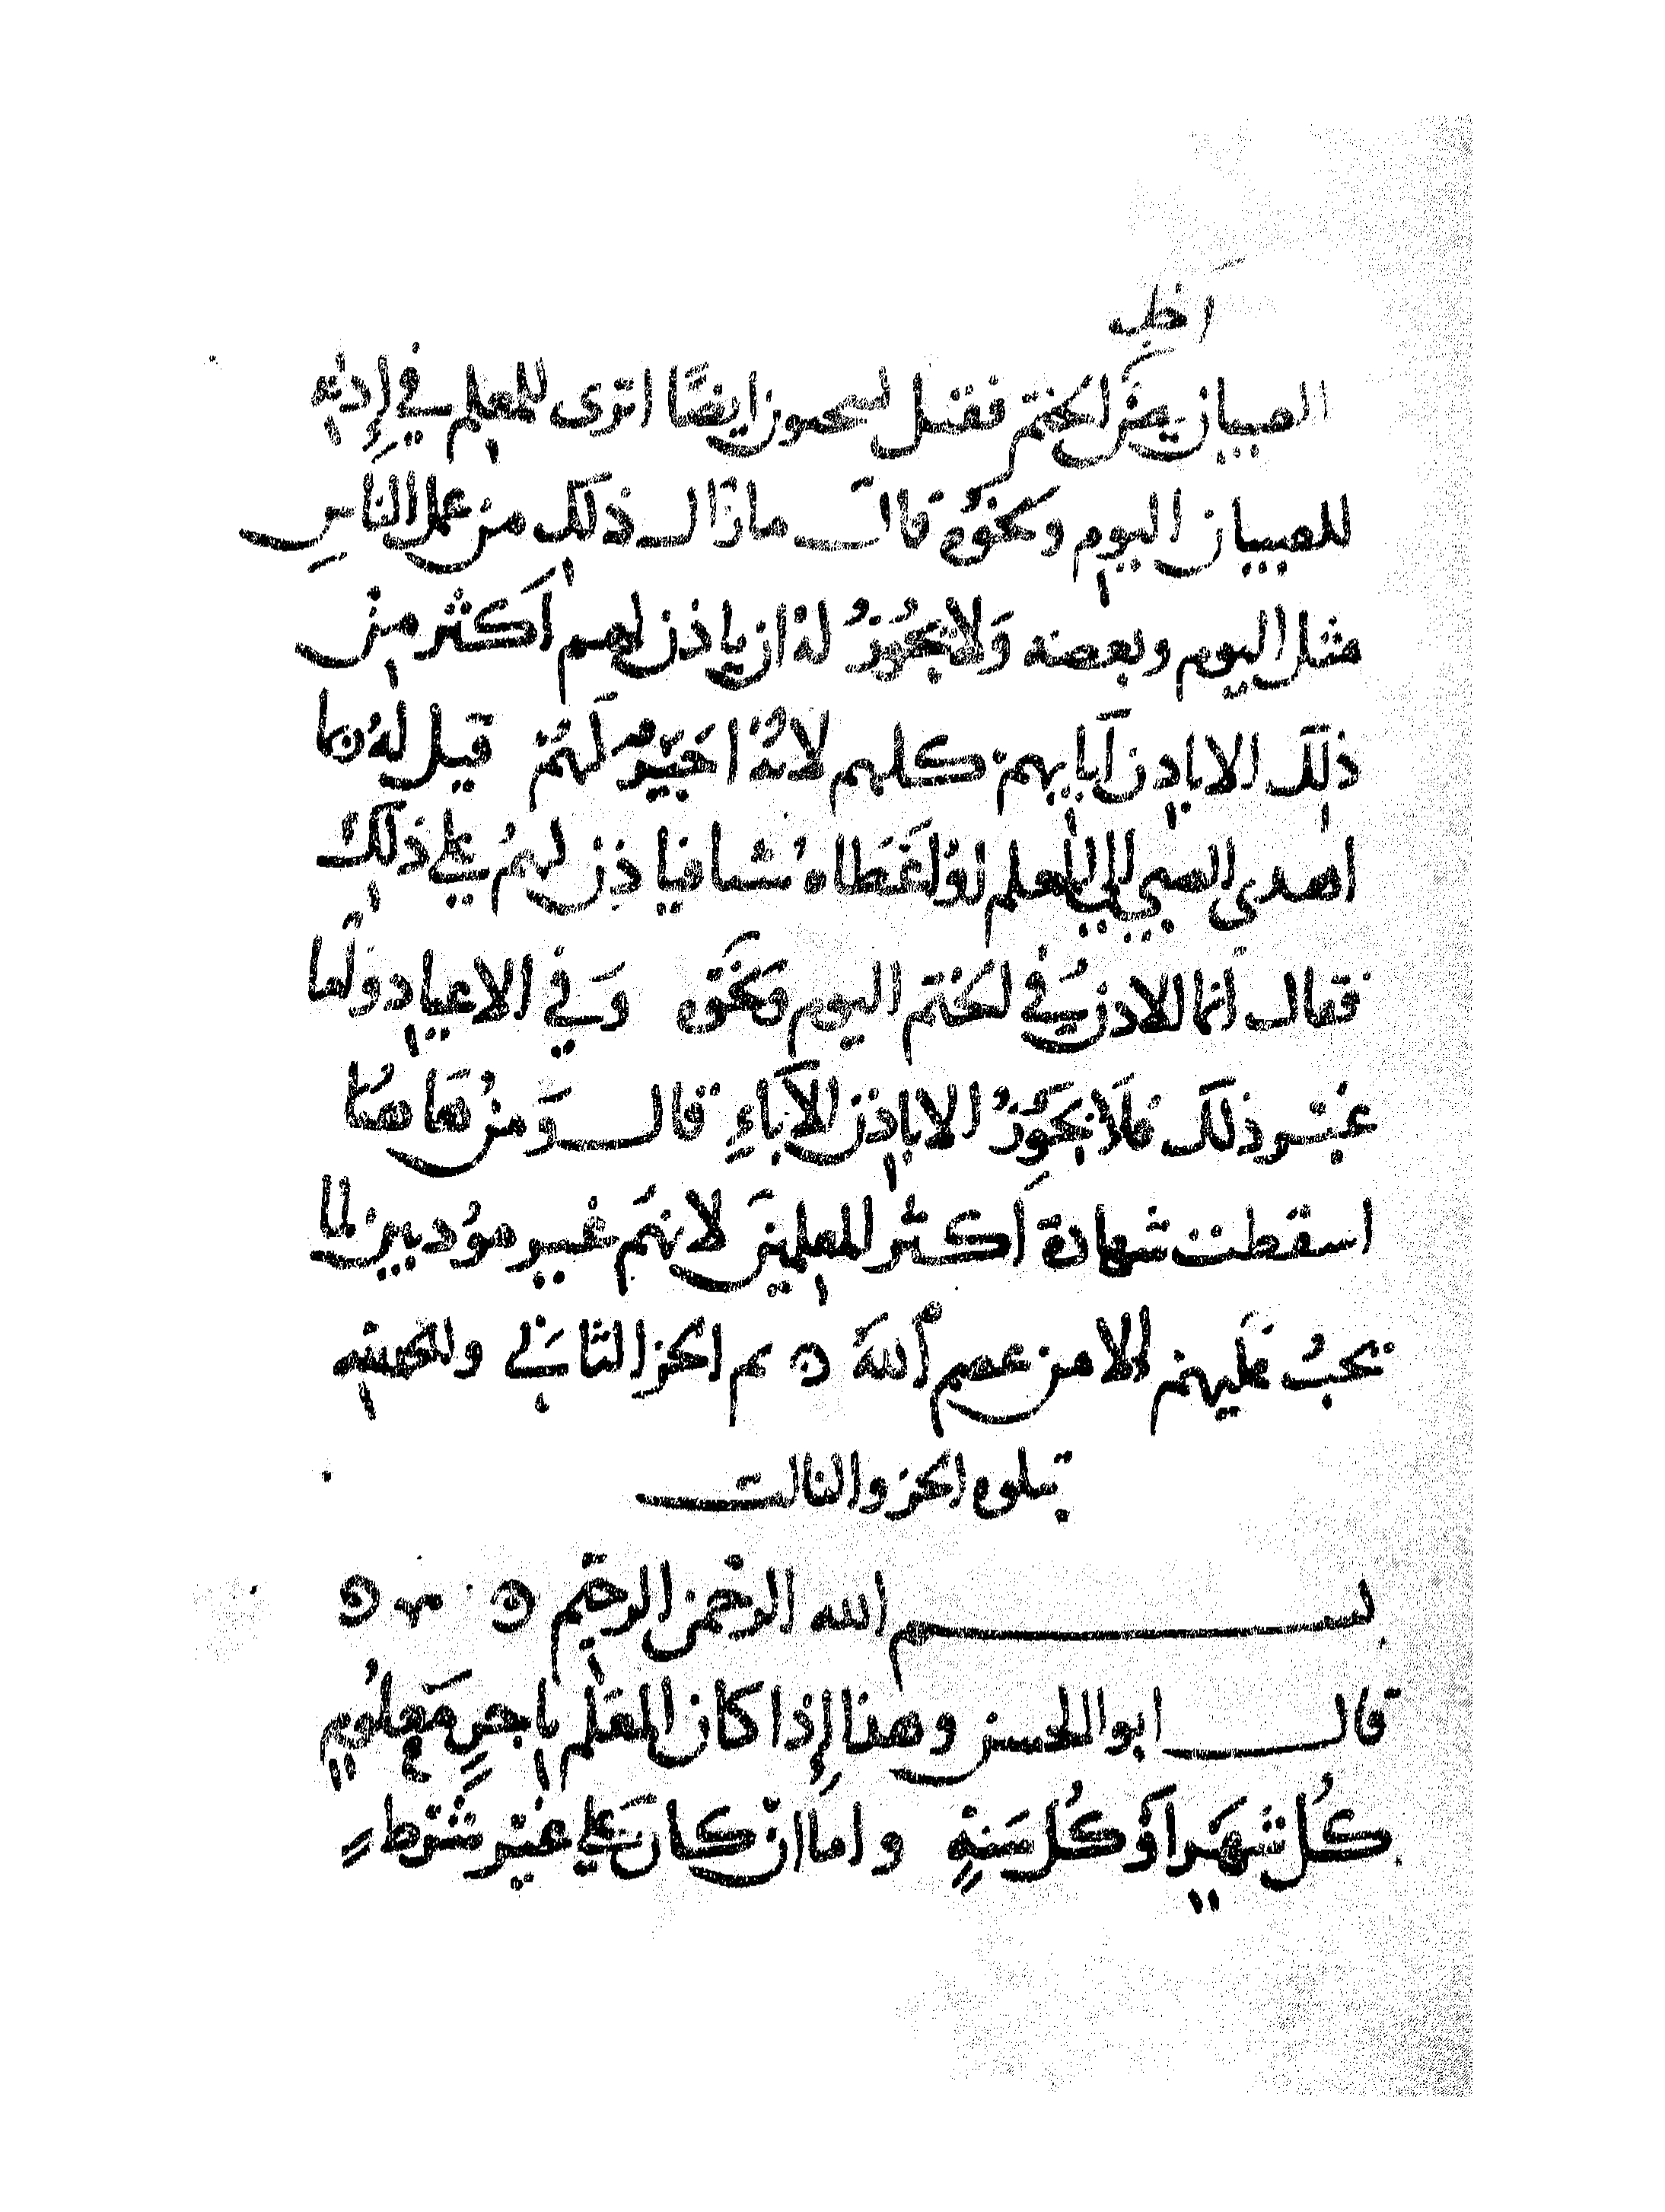 اجل
الصبيان من الختم فقيل لسحنون ايضًا اترى للمعلم في إذنه
للصبيان اليوم ونحوه قال ما زال ذلك من عمل الناس
مثل اليوم وبعضه وَلا يجُوزُ لهُ ان ياذن لهم أكثر من
ذلك الا باذن آبايهم كلهم لانهُ اجَيرٌ لَهُمْ قيل لهُ ربما
اهدى الصبي الى المعلم اوْ اعَطاهُ شيا فياذن لهمُ على ذلكَ
فقال انما الاذنُ في الختم اليوم ونحَوه وَفي الاعياد واما
غير ذلك فلَا يجَوزُ الا باذن الآباءِ قال وَمنْ هَاهنُا
اسقطت شهادة أكثر المعلمين لانهمَ غير مؤدبين لما
يجبُ عَليهم الا من عصم اللهُ ه تم الجز الثاني والحمد لله
يتلوه الجزو الثالث
بسم الله الرحمن الرحيم ه ه
قال ابو الحسن وهذا إذا كان المعَلم باجرٍ مَعلوُمٍ
كُل شهَرٍ اَوْ كُل سَنةٍ واما انْ كانَ على غير شَرْطٍ